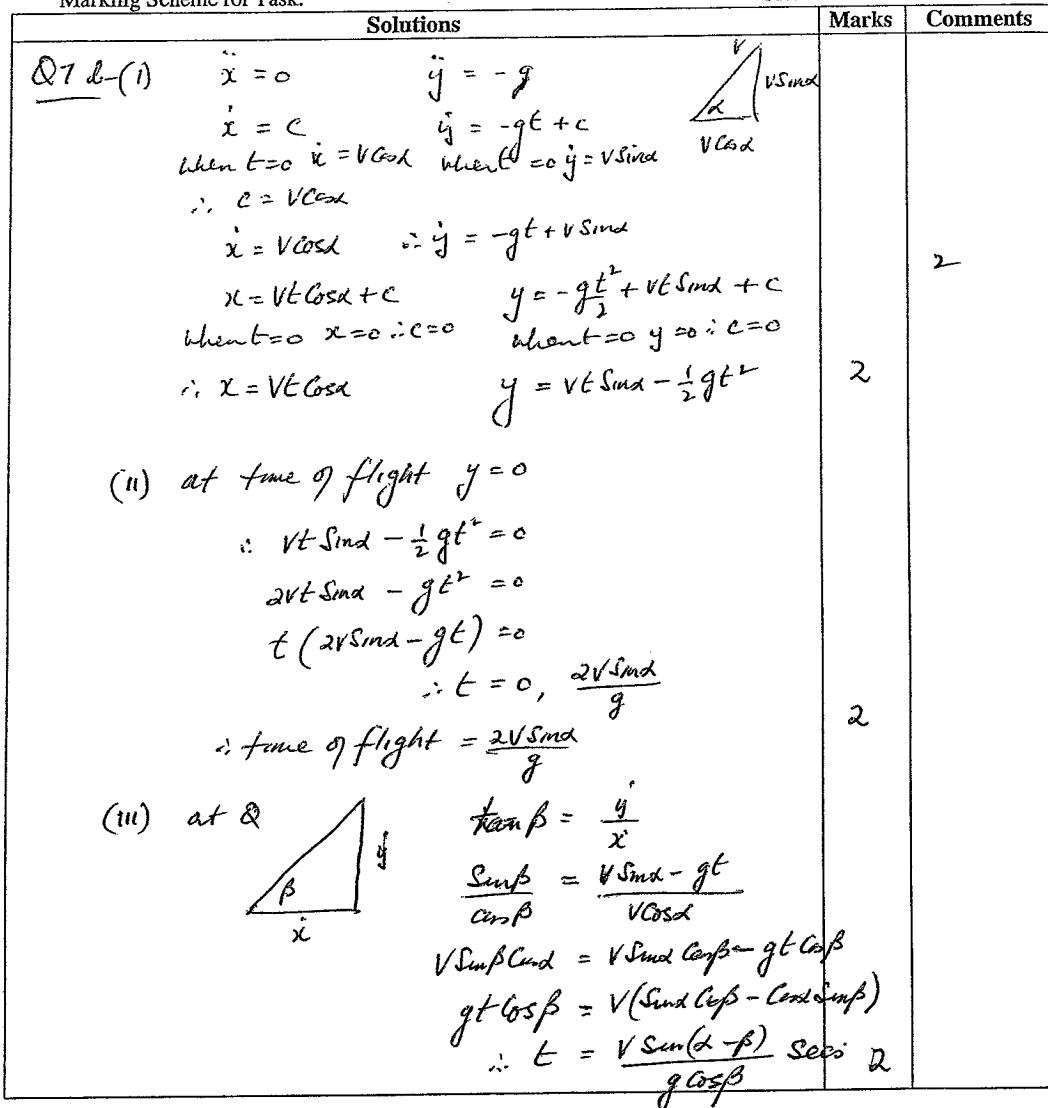 Marking Scheme for Task:
Solutions Marks Comments
Q7 b-(i) ẍ = 0 ÿ = -g
V VSinα α VCosα
ẋ = C ẏ = -gt + c
When t=0 ẋ = VCosα when t=0 ẏ = VSinα
∴ C = VCosα
ẋ = VCosα ∴ ẏ = -gt + VSinα
2
x = VtCosα + C y = -gt²/2 + VtSinα + C
When t=0 x=0 ∴ C=0 when t=0 y=0 ∴ C=0
∴ x = VtCosα y = VtSinα - ½gt² 2
(ii) at time of flight y = 0
∴ VtSinα - ½gt² = 0
2VtSinα - gt² = 0
t(2VSinα - gt) = 0
∴ t = 0, 2VSinα/g
∴ time of flight = 2VSinα/g 2
(iii) at Q tan β = ẏ/ẋ
β ẋ ẏ
Sinβ/cosβ = (VSinα - gt)/VCosα
VSinβCosα = VSinαCosβ - gtCosβ
gtCosβ = V(SinαCosβ - CosαSinβ)
∴ t = VSin(α-β)/gCosβ Secs 2